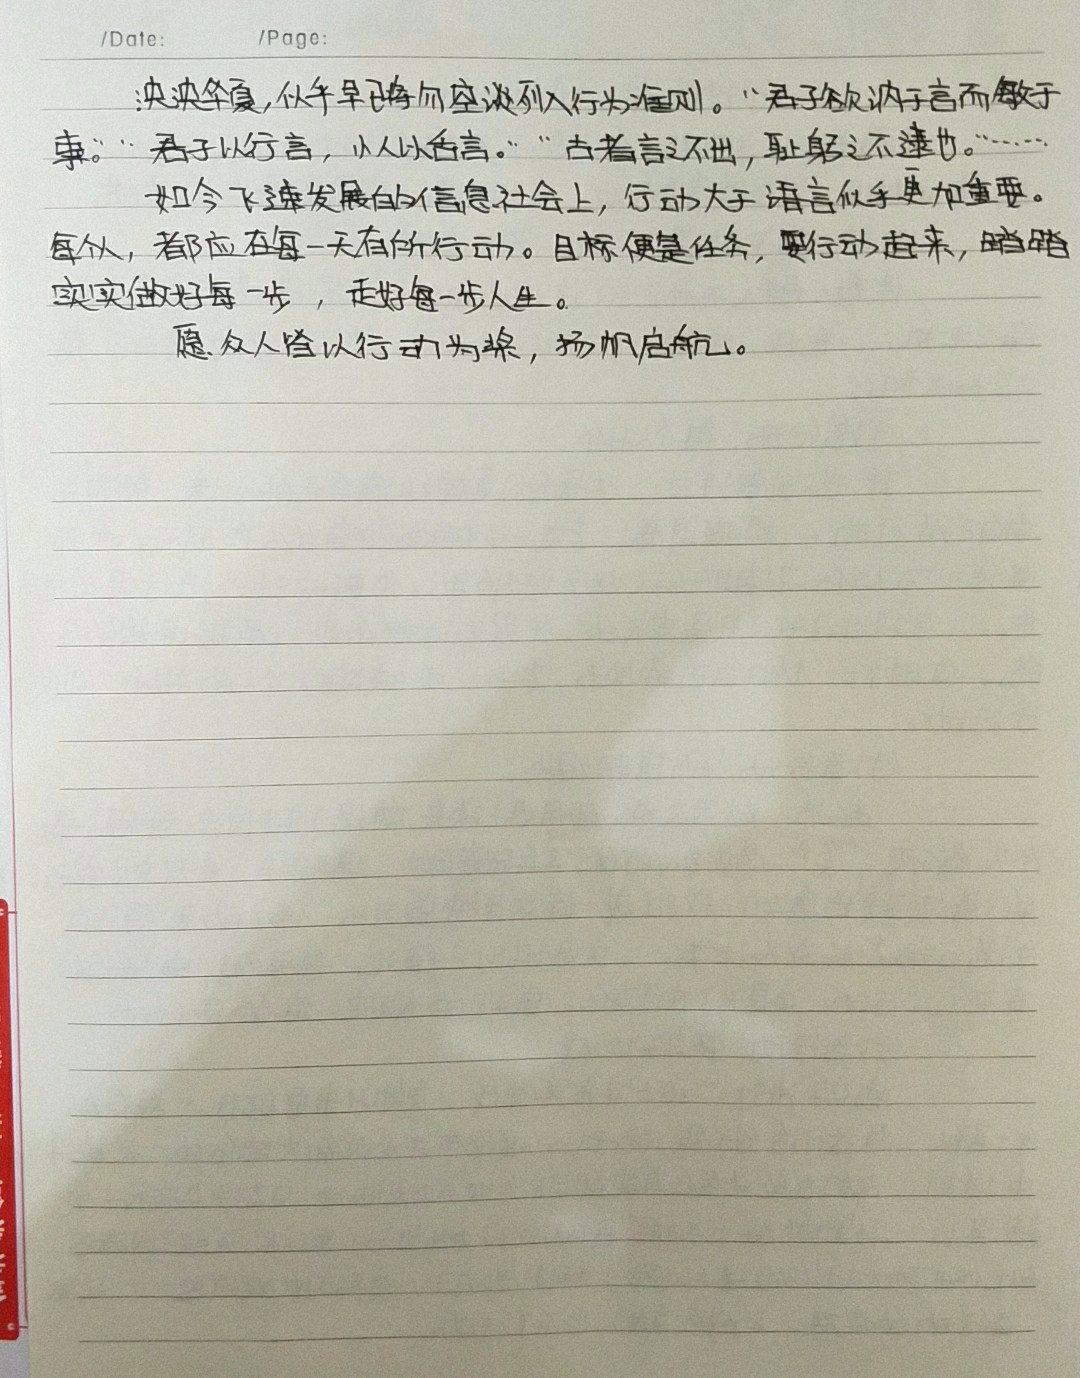 /Date: /Page:
泱泱华夏，似乎早已将勿空谈列入行为准则。“君子欲讷于言而敏于
事。”“君子以行言，小人以舌言。”“古者言之不出，耻躬之不逮也。”……
如今飞速发展的信息社会上，行动大于语言似乎更加重要。
每个人，都应在每一天有所行动。目标便是任务，要行动起来，踏踏
实实做好每一步，走好每一步人生。
愿众人皆以行动为桨，扬帆启航。